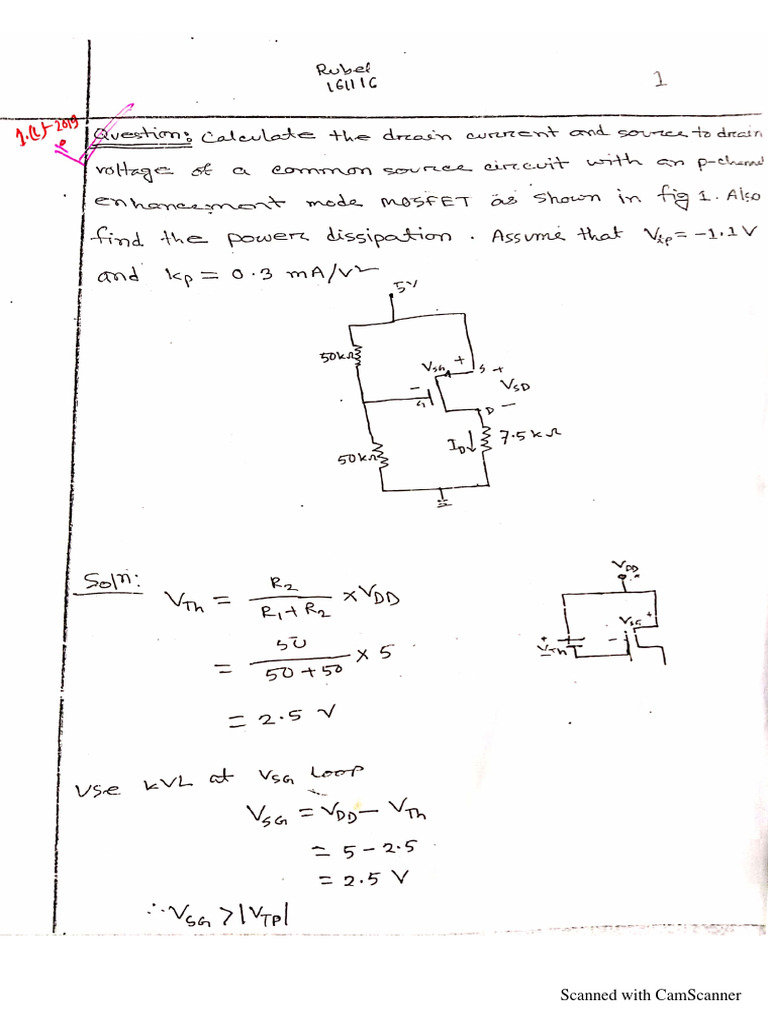 Rubel
161116
1
1.(L)-2019
Question: Calculate the drain current and source to drain
voltage of a common source circuit with an p-channel
enhancement mode MOSFET as shown in fig 1. Also
find the power dissipation. Assume that Vtp = -1.1V
and kp = 0.3 mA/V²
5V
50kΩ
VSG + S +
- VSD
G D -
ID ↓ 7.5kΩ
50kΩ
Soln:
VTh = R2 / (R1 + R2) × VDD
VDD
= 50 / (50 + 50) × 5
VSG +
+ -
VTh
= 2.5 V
Use KVL at VSG Loop
VSG = VDD - VTh
= 5 - 2.5
= 2.5 V
∴ VSG > |VTP|
Scanned with CamScanner